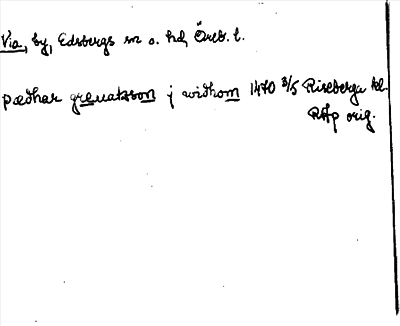 Via, by, Edsbergs sn o. hd, Öreb. l.
pædhar greuatsson j widhom 1470 3/5 Riseberga kl.
RAp orig.